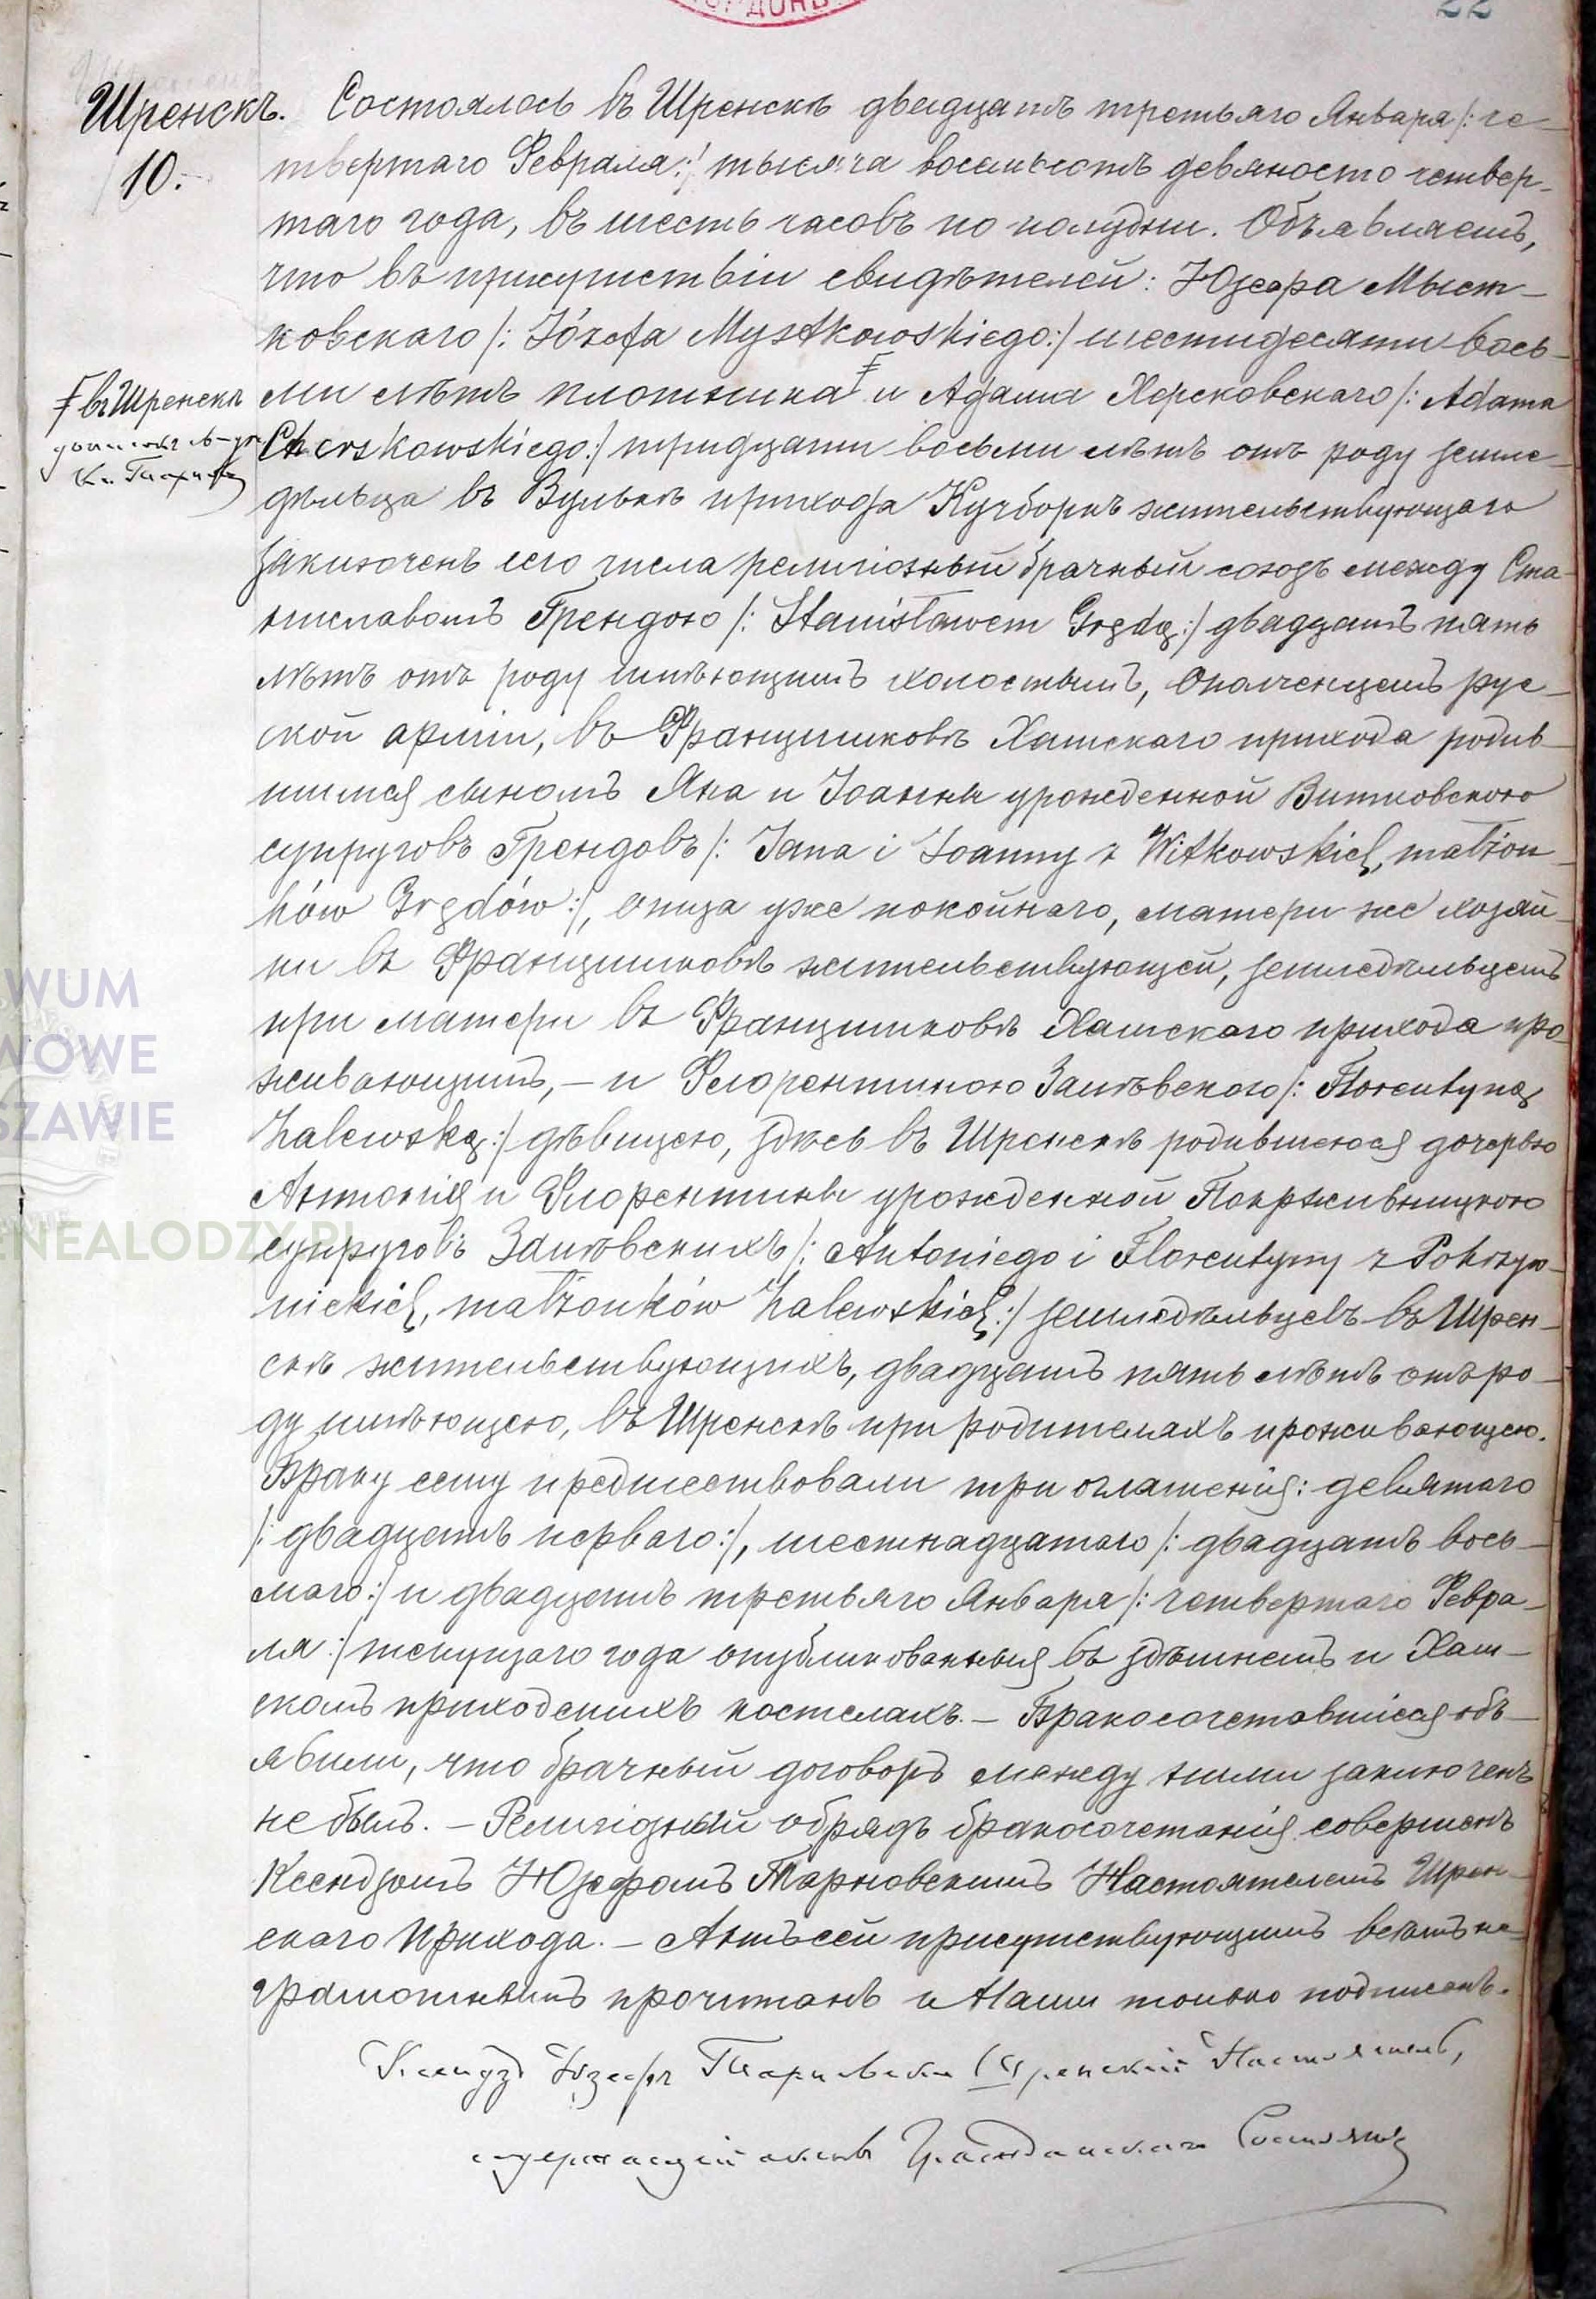 22
Шренскъ.
10.
Состоялось въ Шренскѣ двадцать третьяго Января /: че-
твертаго Февраля :/ тысяча восемьсотъ девяносто четвер-
таго года, въ шесть часовъ по полудни. Объявляемъ,
что въ присутствіи свидѣтелей: Юзефа Мыст-
ковскаго /: Józefa Mystkowskiego :/ шестидесяти вось-
ми лѣтъ плотника и Адама Херсковскаго /: Adama
Cherskowskiego :/ тридцати восьми лѣтъ отъ роду земле-
дѣльца въ Вулькѣ прихода Кучборкъ жительствующаго
заключенъ сего числа религіозный брачный союзъ между Ста-
ниславомъ Грендою /: Stanisławem Grędą :/ двадцать пять
лѣтъ отъ роду имѣющимъ холостымъ, ополченцемъ рус-
ской арміи, въ Францишковѣ Хамскаго прихода родив-
шимся сыномъ Яна и Іоанны урожденной Витковскою
супруговъ Грендовъ /: Jana i Joanny z Witkowskich, małżon-
ków Grędów :/, отца уже покойнаго, матери же хозяй-
ки въ Францишковѣ жительствующей, земледѣльцемъ
при матери въ Францишковѣ Хамскаго прихода про-
живающимъ, – и Флорентиною Залѣвскою /: Florentyną
Zalewską :/ дѣвицею, здѣсь въ Шренскѣ родившеюся дочерью
Антонія и Флорентины урожденной Покрживницкою
супруговъ Залѣвскихъ /: Antoniego i Florentyny z Pokrzyw-
nickich, małżonków Zalewskich :/ земледѣльцевъ въ Шрен-
скѣ жительствующихъ, двадцать пять лѣтъ отъ ро-
ду имѣющею, въ Шренскѣ при родителяхъ проживающею.
Браку сему предшествовали три оглашенія: девятаго
/: двадцать перваго :/, шестнадцатаго /: двадцать вось-
маго :/ и двадцать третьяго Января /: четвертаго Февра-
ля :/ текущаго года опубликованныя въ здѣшнемъ и Хам-
скомъ приходскихъ костелахъ. – Бракосочетавшіеся объ-
явили, что брачный договоръ между ними заключенъ
не былъ. – Религіозный обрядъ бракосочетанія совершенъ
Ксендзомъ Юзефомъ Тарновскимъ Настоятелемъ Шрен-
скаго Прихода. – Актъ сей присутствующимъ всѣмъ не-
грамотнымъ прочитанъ и Нами только подписанъ.
въ Шренскѣ
Ксендзъ Юзефъ Тарновски Шренскій Настоятель,
содержащій актовъ Гражданскаго Состоянія
WUM
WOWE
SZAWIE
ENEALODZY.PL